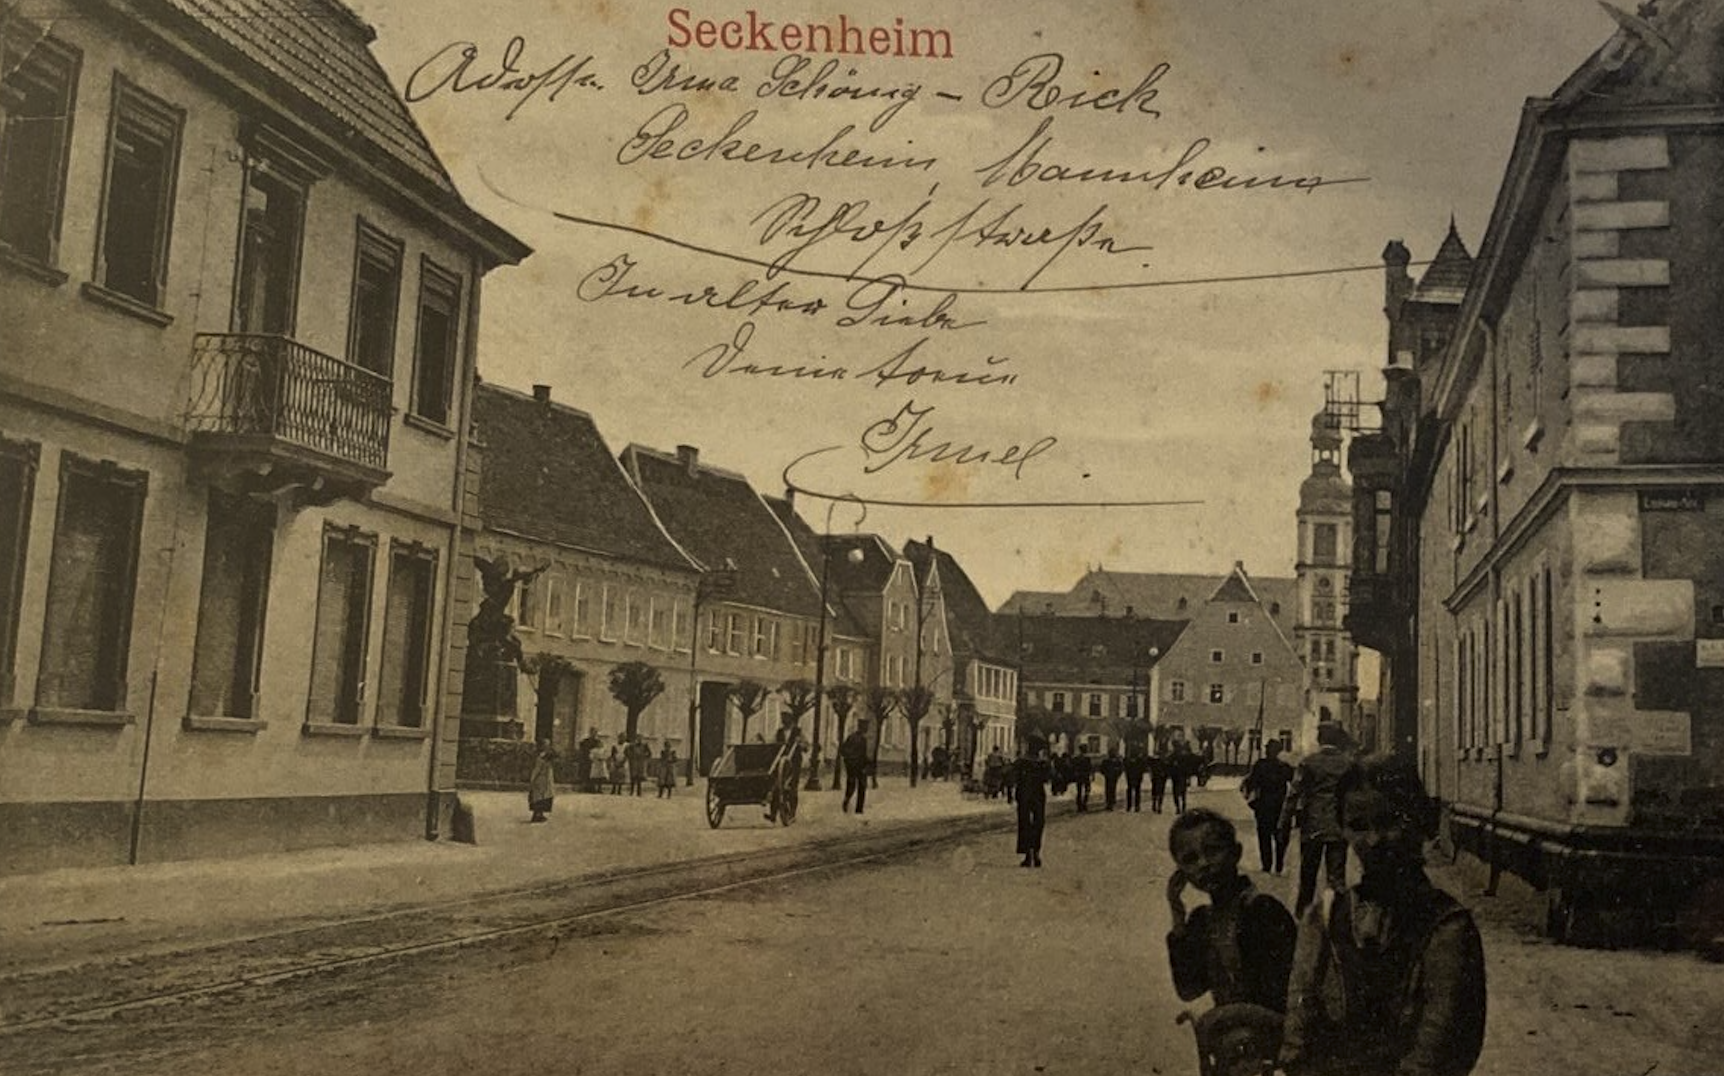 Seckenheim
Adresse. Irma Schönig – Rick
Seckenheim, Mannheim
Schloßstraße.
In alter Liebe
Deine treue
Irmel.